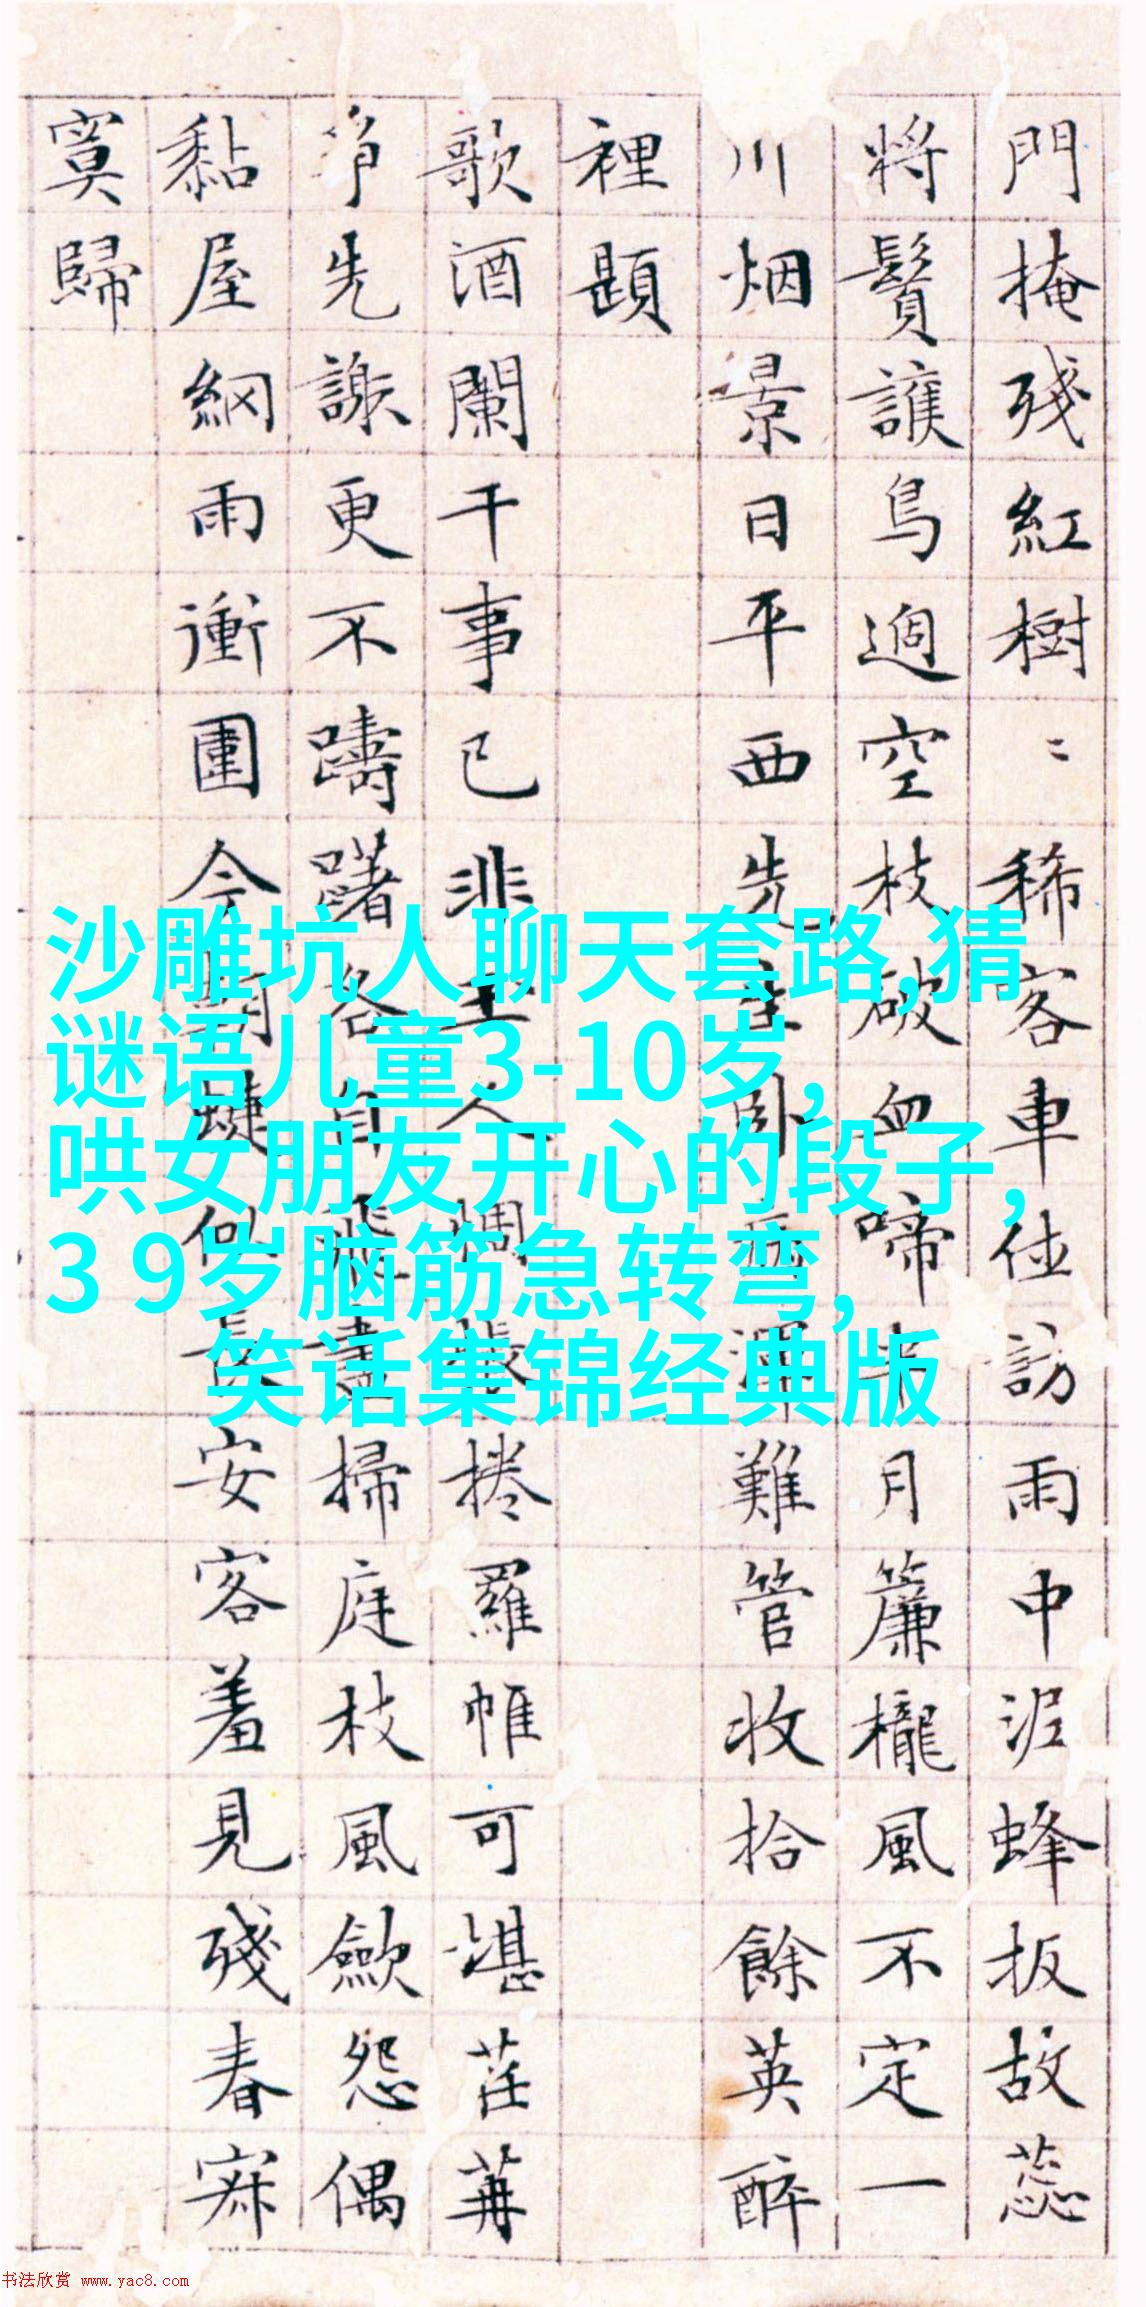 門掩殘紅樹〻稀客車訪雨中泥蜂扳故蕊
將鬚護鳥過空枝破血啼半月簾櫳風不定一
川烟景日平西先生臥病渾難管收拾餘英醉
裡題
歌酒闌干事已非主人惆悵捲羅帷可堪荏苒
爭先謝更不躊躇各自飛晝掃庭枝風歛怨偶
黏屋網雨衝圍今朝似長安客羞見殘春寂
寞歸
沙雕坑人聊天套路,猜
谜语儿童3-10岁,
哄女朋友开心的段子,
3 9岁脑筋急转弯,
笑话集锦经典版
书法欣赏 www.yac8.com